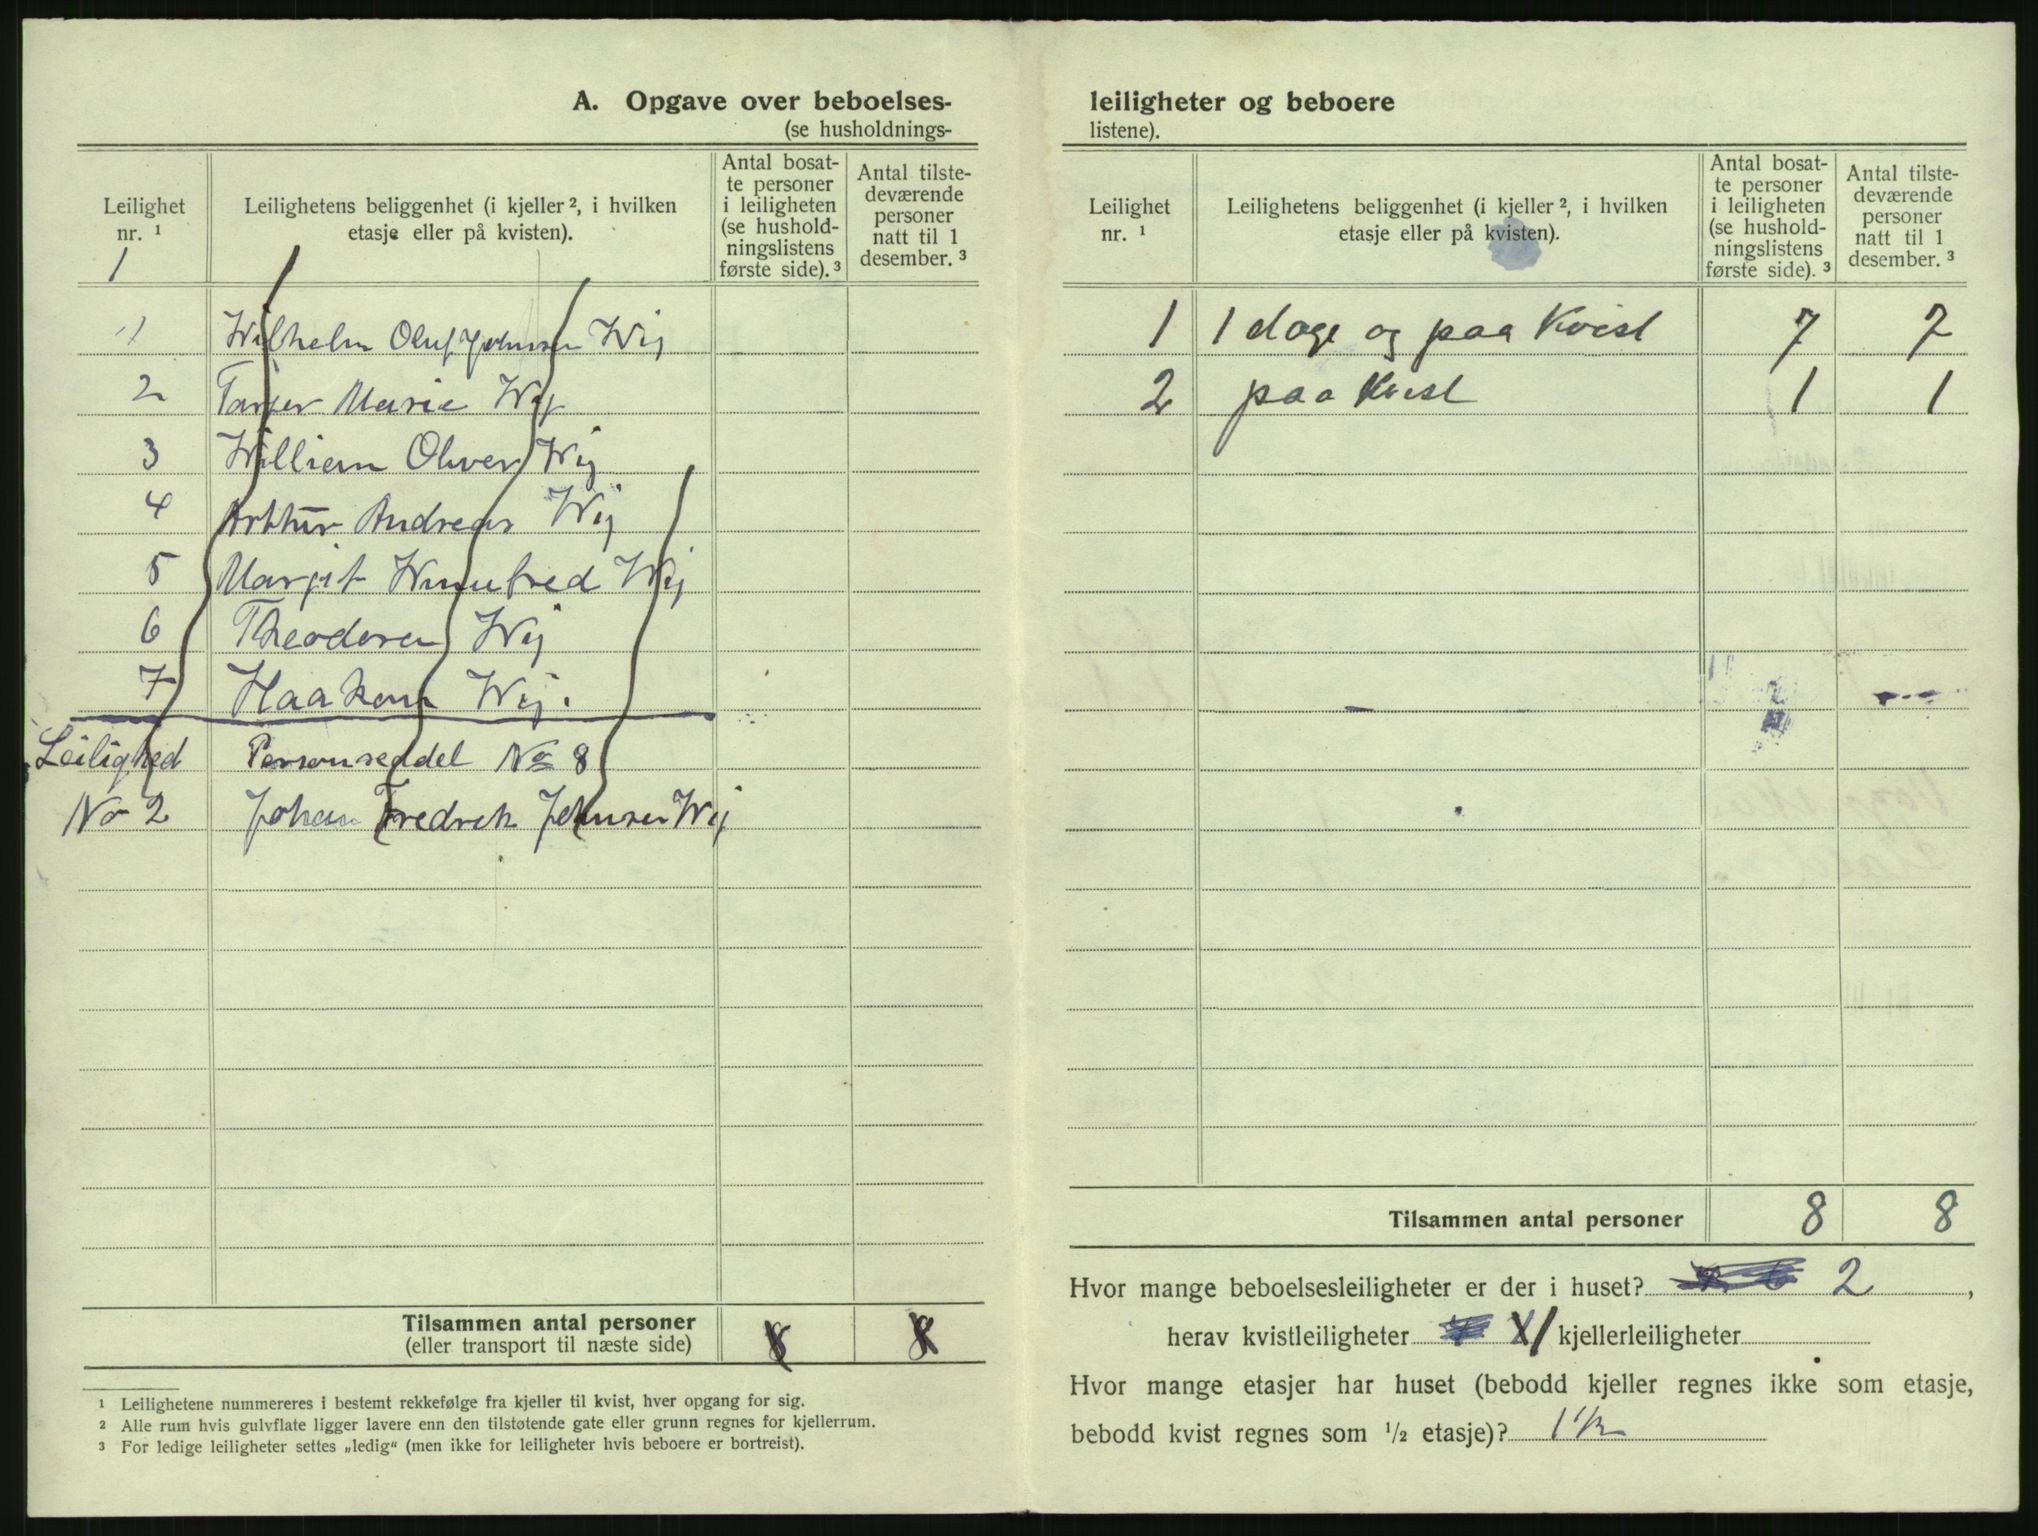 A. Opgave over beboelses-
(se husholdnings-
Leilighet nr. ¹
Leilighetens beliggenhet (i kjeller ², i hvilken etasje eller på kvisten).
Antal bosat-
te personer
i leiligheten
(se hushold-
ningslistens
første side). ³
Antal tilste-
deværende
personer
natt til 1
desember. ³
1
1 Wilhelm Oluf Johnsen Wij
2 Marie Wij
3 William Oliver Wij
4 Arthur Andreas Wij
5 Margit Winnefred Wij
6 Theodoren Wij
7 Haakon Wij.
Leilighed Personseddel No 8
No 2 Johan Fredrik Johnsen Wij
Tilsammen antal personer 8 8
(eller transport til næste side)
¹ Leilighetene nummereres i bestemt rekkefølge fra kjeller til kvist, hver opgang for sig.
² Alle rum hvis gulvflate ligger lavere enn den tilstøtende gate eller grunn regnes for kjellerrum.
³ For ledige leiligheter settes „ledig“ (men ikke for leiligheter hvis beboere er bortreist).
leiligheter og beboere
listene).
Leilighet nr. ¹
Leilighetens beliggenhet (i kjeller ², i hvilken etasje eller på kvisten).
Antal bosat-
te personer
i leiligheten
(se hushold-
ningslistens
første side). ³
Antal tilste-
deværende
personer
natt til 1
desember. ³
1 1 og paa Kvist 7 7
2 paa Kvist 1 1
Tilsammen antal personer 8 8
Hvor mange beboelsesleiligheter er der i huset? 2,
herav kvistleiligheter 1 kjellerleiligheter
Hvor mange etasjer har huset (bebodd kjeller regnes ikke som etasje,
bebodd kvist regnes som ½ etasje)? 1 ½